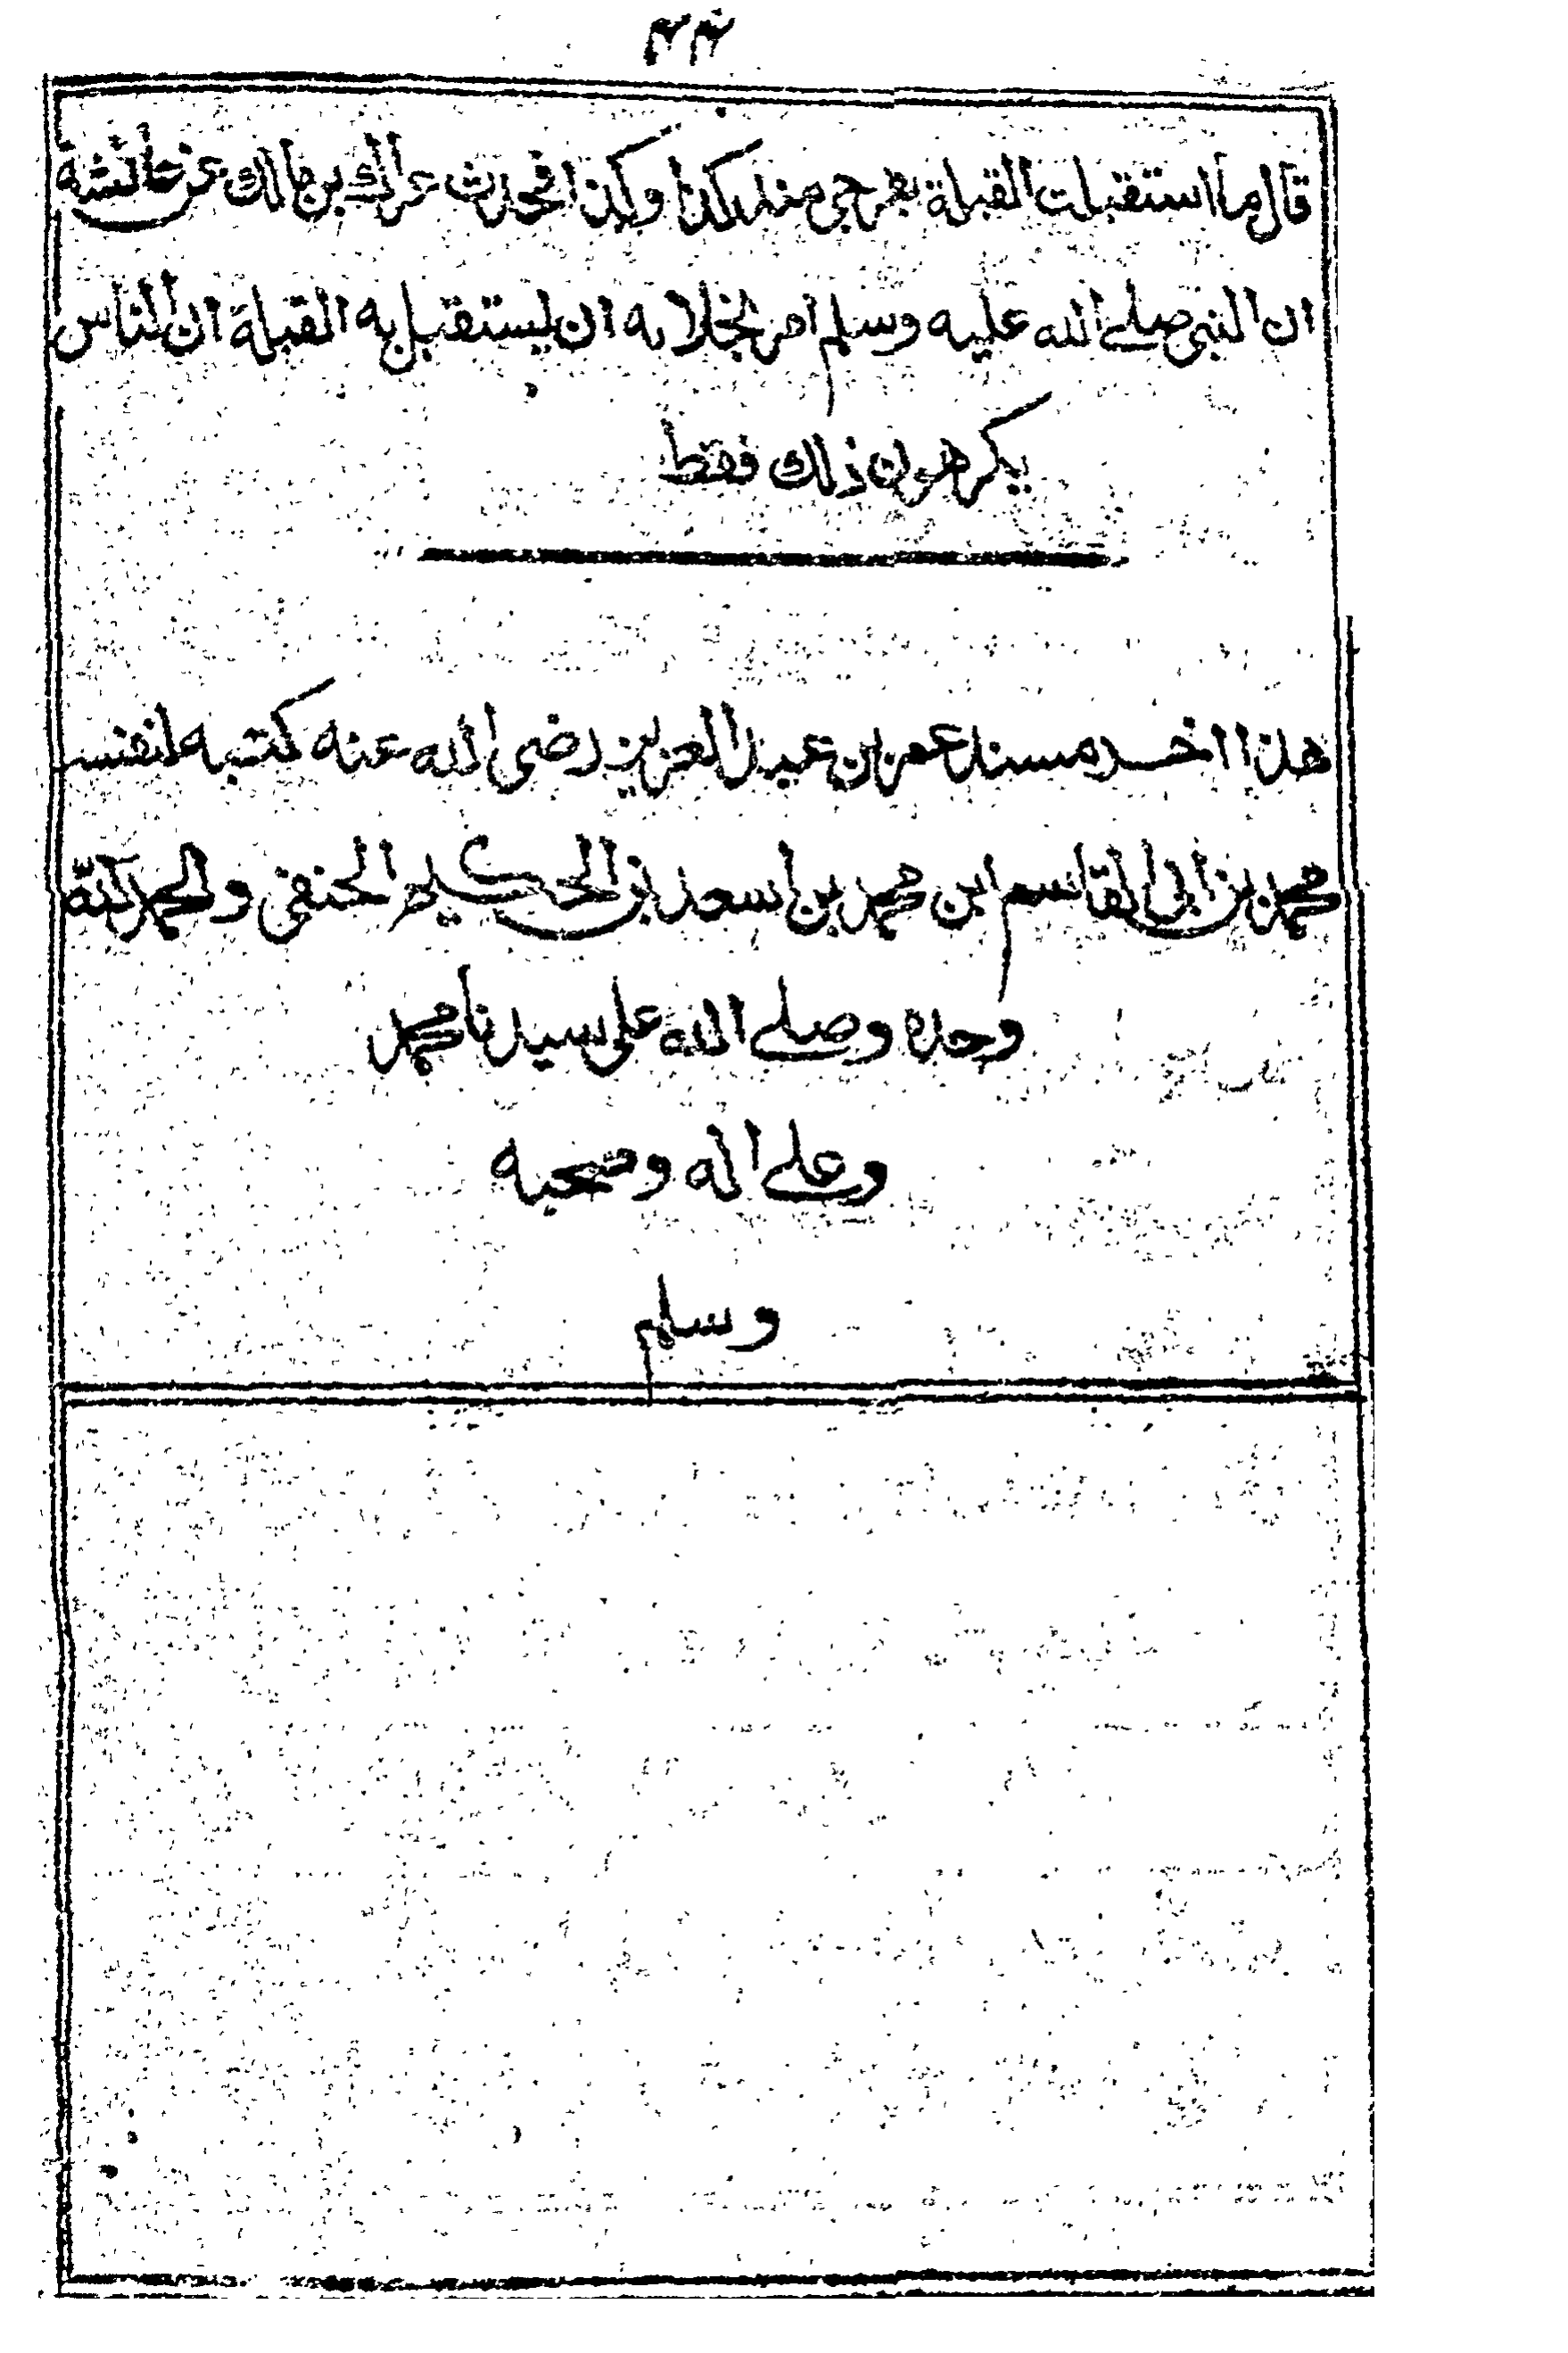 ۴۴
قال ما استقبلت القبلة بفرجى منذ كذا وكذا فحدث عراك بن مالك عن عائشة
ان النبى صلے الله عليه وسلم امر بخلائه ان يستقبل به القبلة ان الناس
يكرهون ذلك فقط
هذا اخر مسند عمر بن عبد العزيز رضى الله عنه كتبه لنفسه
محمد بن ابى القاسم ابن محمد بن اسعد بن الحنفى والحمد لله
وحده وصلے الله على سيدنا محمد
وعلے اله وصحبه
وسلم